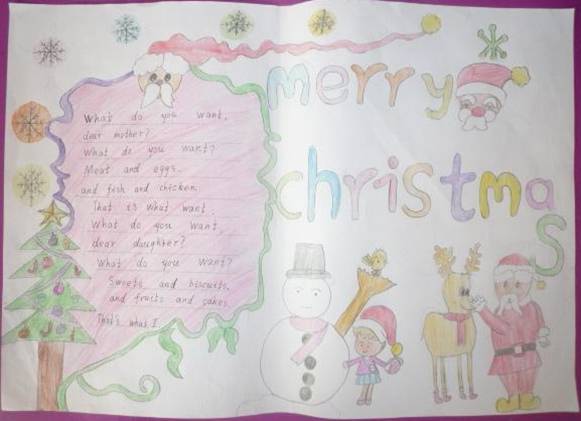 merry
christmas
What do you want,
dear mother?
What do you want?
Meat and eggs.
and fish and chicken.
That is what want.
What do you want,
dear daughter?
What do you want?
Sweets and biscuits,
and fruits and cakes
That's what I